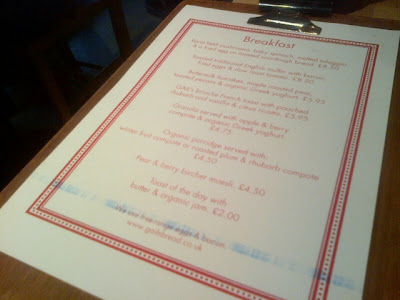 Breakfast
field mushrooms, baby spinach,
& a fried egg on toasted sourdough bread. £8.50
Toasted traditional English muffin with bacon,
fried eggs & slow roast tomato.
Buttermilk pancakes, maple roasted pear,
toasted pecans & organic Greek yoghurt. £5.95
GAIL's brioche French toast with poached
rhubarb and vanilla & citrus ricotta. £5.95
Granola served with apple & berry
compote & organic Greek yoghurt.
£4.75
Organic porridge served with:
winter fruit compote or roasted plum & rhubarb compote
£4.50
Pear & berry bircher muesli. £4.50
Toast of the day with
butter & organic jam. £2.00
We use free-range eggs & bacon.
www.gailsbread.co.uk